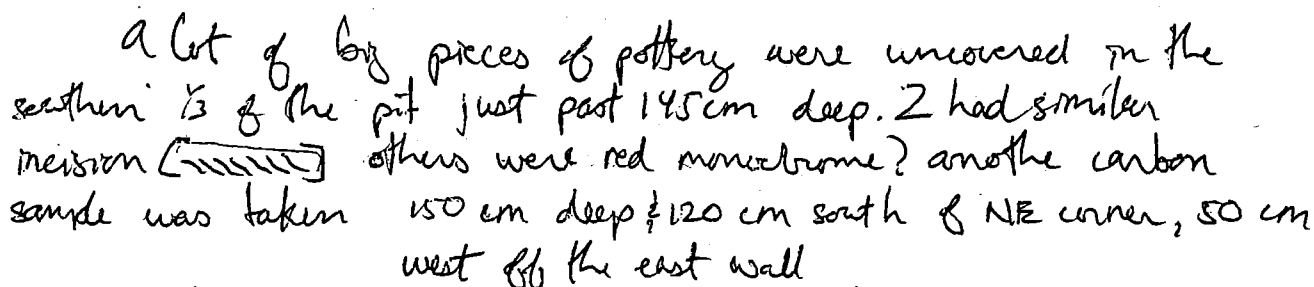 a lot of big pieces of pottery were uncovered in the
southern 1/3 of the pit just past 145cm deep. 2 had similar
incision [\\\\\\\] others were red monochrome? anothe carbon
sample was taken 150 cm deep & 120 cm south of NE corner, 50 cm
west off the east wall